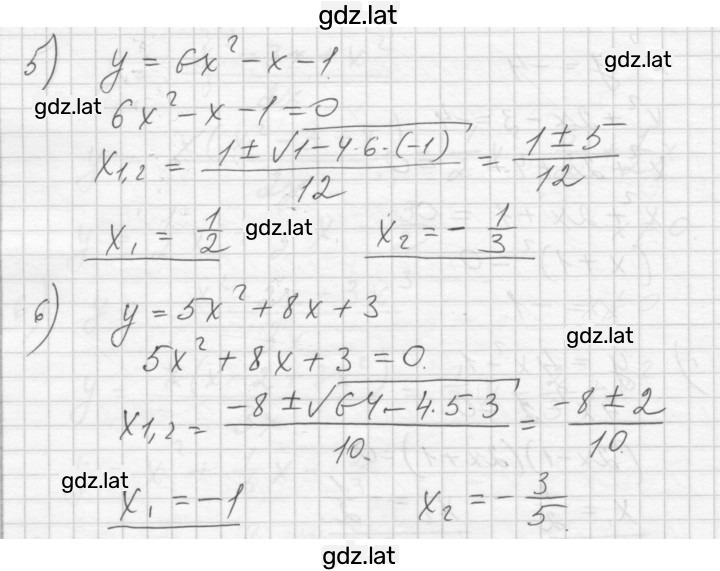 gdz.lat
5) y = 6x² - x - 1
gdz.lat
gdz.lat
6x² - x - 1 = 0
x₁,₂ = (1 ± √(1 - 4·6·(-1)))/12 = (1 ± 5)/12
x₁ = 1/2 gdz.lat x₂ = - 1/3
6) y = 5x² + 8x + 3
gdz.lat
5x² + 8x + 3 = 0.
x₁,₂ = (-8 ± √(64 - 4·5·3))/10. = (-8 ± 2)/10.
gdz.lat
x₁ = -1 x₂ = - 3/5.
gdz.lat